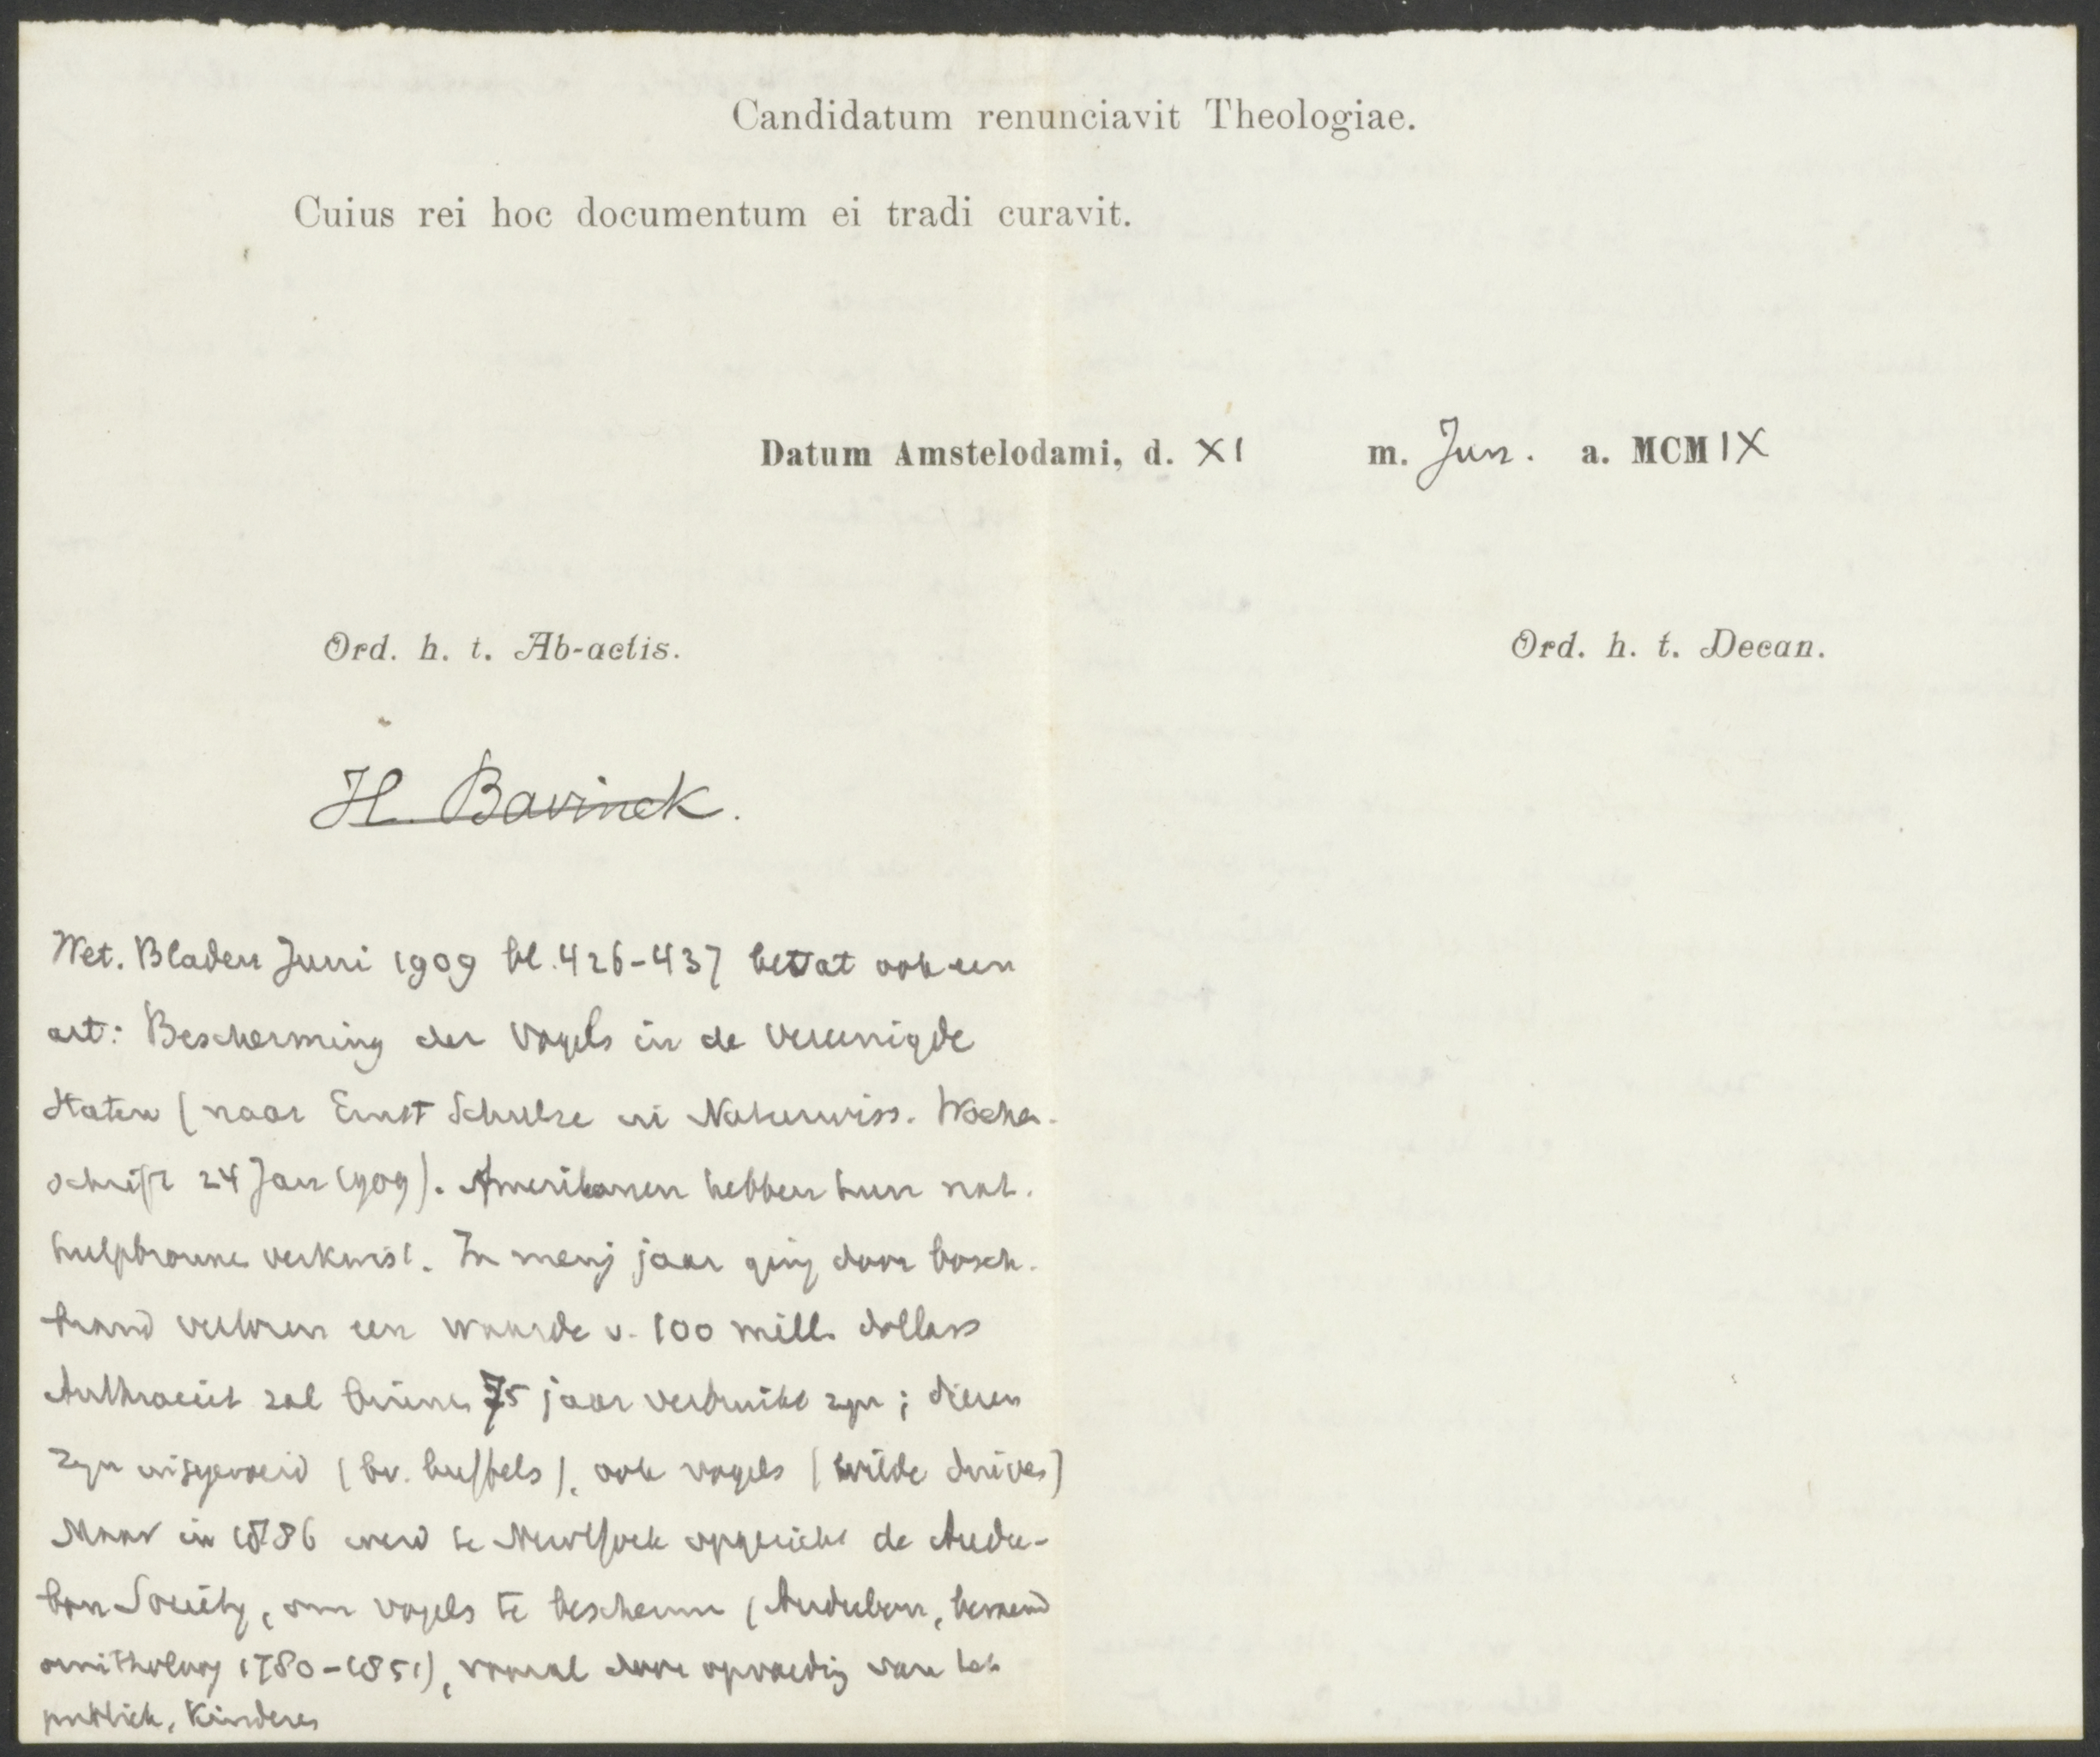 Candidatum renunciavit Theologiae.
Cuius rei hoc documentum ei tradi curavit.
Datum Amstelodami, d. XI m. Jun. a. MCMIX
Ord. h. t. Ab-actis. Ord. h. t. Decan.
H. Bavinck.
Wet. Bladen Juni 1909 bl. 426-437 bevat ook een
art: Bescherming der vogels in de Vereenigde
Staten (naar Ernst Schulze in Naturwiss. Wochen-
schrift 24 Jan 1909). Amerikanen hebben hun nat.
hulpbronnen verkwist. In menig jaar ging door bosch-
brand verloren een waarde v. 100 mill. dollars
Anthraciet zal binnen 75 jaar verbruikt zijn; dieren
zijn uitgeroeid (bv. buffels), ook vogels (wilde duiven)
Maar in 1886 werd te NewYork opgericht de Audu-
bon Society, om vogels te bescherm (Audubon, beroemd
ornitholoog 1780-1851), vooral door opvoeding van het
publiek, kinderen